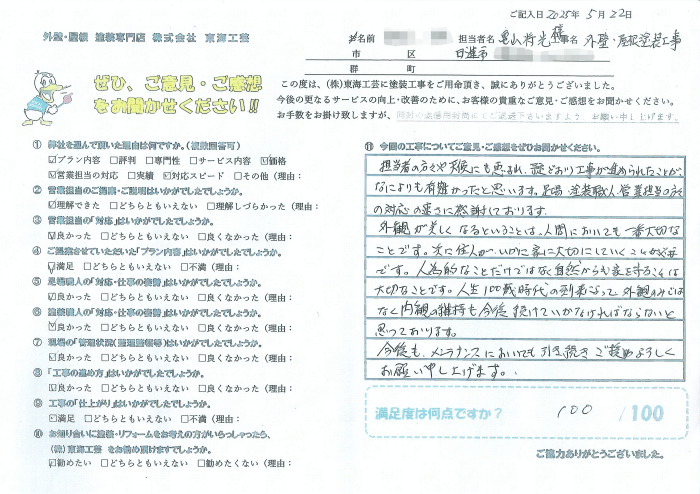 ご記入日 2025年 5月 22日
外壁・屋根 塗装専門店 株式会社 東海工芸
お名前 様
担当者名 亀山将光 工事名 外壁・屋根塗装工事
市 区 日進市
郡 町
ぜひ、ご意見・ご感想
をお聞かせください!!
この度は、(株)東海工芸に塗装工事をご用命頂き、誠にありがとうございました。
今後の更なるサービスの向上・改善のために、お客様の貴重なご意見・ご感想をお聞かせください。
お手数をお掛け致しますが、
お願い申し上げます。
① 弊社を選んで頂いた理由は何ですか。(複数回答可)
☑プラン内容 □評判 □専門性 □サービス内容 ☑価格
☑営業担当の対応 □実績 ☑対応スピード □その他(理由:
② 営業担当のご提案・ご説明はいかがでしたでしょうか。
☑理解できた □どちらともいえない □理解しづらかった(理由:
③ 営業担当の「対応」はいかがでしたでしょうか。
☑良かった □どちらともいえない □良くなかった(理由:
④ ご提案させていただいた「プラン内容」はいかがでしたでしょうか。
☑満足 □どちらともいえない □不満(理由:
⑤ 足場職人の「対応・仕事の姿勢」はいかがでしたでしょうか。
☑良かった □どちらともいえない □良くなかった(理由:
⑥ 塗装職人の「対応・仕事の姿勢」はいかがでしたでしょうか。
☑良かった □どちらともいえない □良くなかった(理由:
⑦ 現場の「管理状況(整理整頓等)」はいかがでしたでしょうか。
☑良かった □どちらともいえない □良くなかった(理由:
⑧ 「工事の進め方」はいかがでしたでしょうか。
☑良かった □どちらともいえない □良くなかった(理由:
⑨ 工事の「仕上がり」はいかがでしたでしょうか。
☑満足 □どちらともいえない □不満(理由:
⑩ お知り合いに塗装・リフォームをお考えの方がいらっしゃったら、
(株)東海工芸 をお勧め頂けますでしょうか。
☑勧めたい □どちらともいえない □勧めたくない(理由:
⑪ 今回の工事についてご意見・ご感想をぜひお聞かせください。
担当者の方々や天候にも恵まれ、予定どおり工事が進められたことが、
なによりも有難かったと思います。足場・塗装職人、営業担当の方々
の対応の速さに感謝しております。
外観が美しくなるということは、人間においても一番大切な
ことです。次に住人が、いかに家に大切にしていくことが必要
です。人為的なことだけではなく自然からも家を守ることは
大切なことです。人生100歳時代の到来によって、外観のみでは
なく内観の維持も今後 続けていかなければならないと
思っております。
今後も、メンテナンスにおいても引き続きご鞭撻よろしく
お願い申し上げます。
満足度は何点ですか? 100 /100
ご協力ありがとうございました。